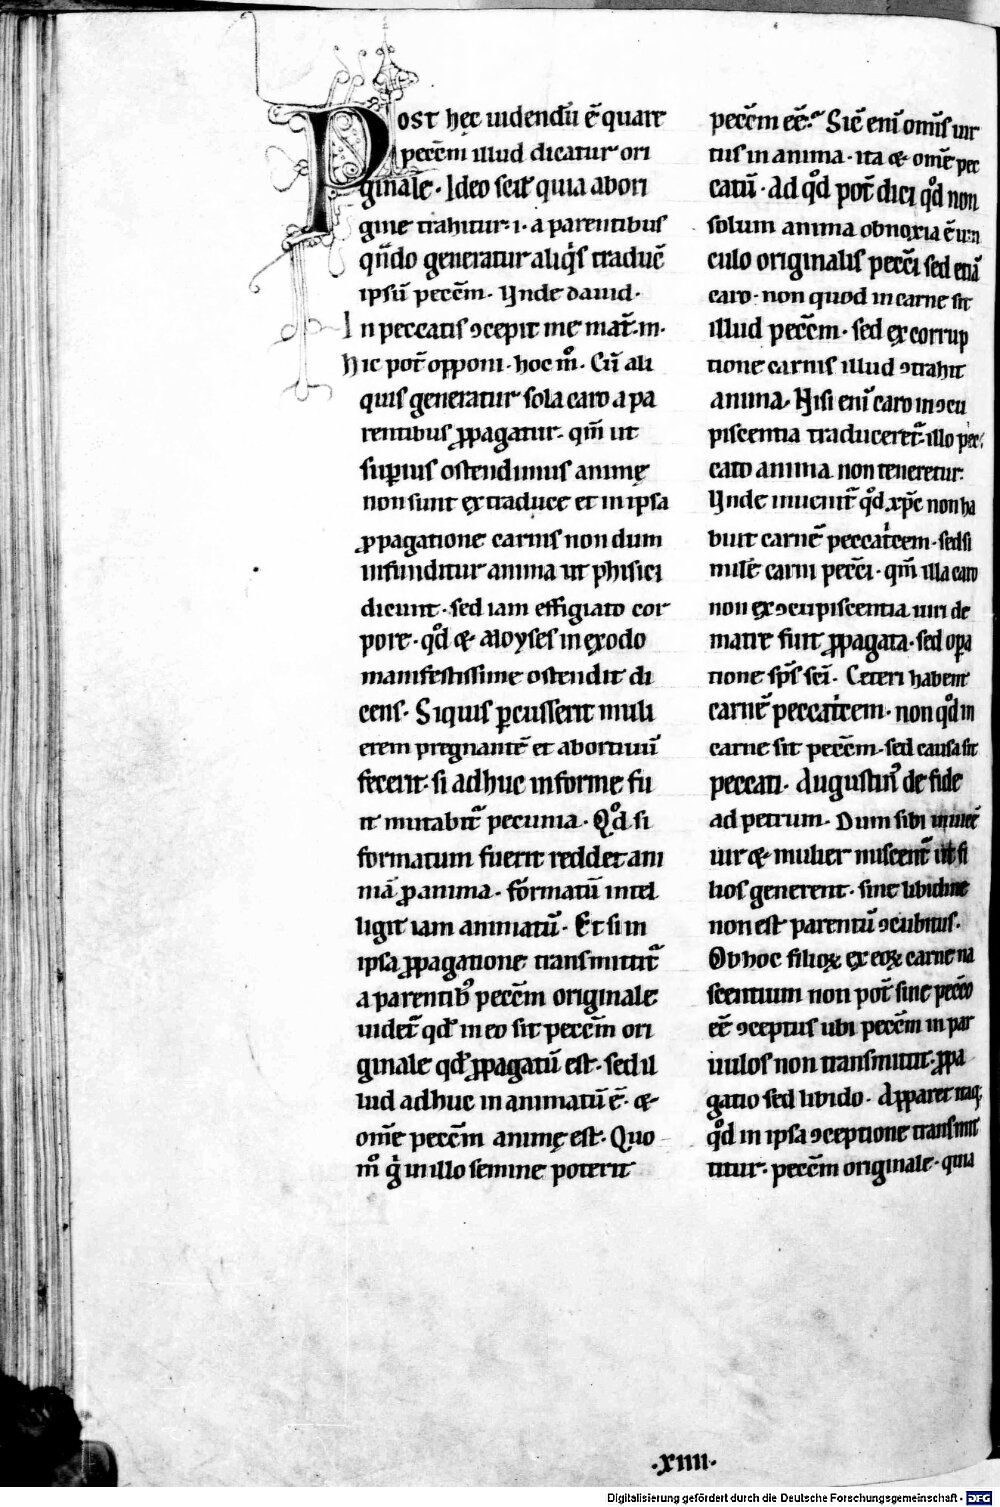 Post hęc uidendū ē quare
peccm̄ illud dicatur ori
ginale · Ideo scił quia ab ori
gine trahitur · i · a parentibus
qn̄do generatur aliq̍s traducē
ipsū peccm̄ · Vnde dauid ·
In peccatis ꝯcepit me mat̄ · m ·
Hic pot̄ opponi · hoc mͦ · Cū ali
quis generatur sola caro a pa
rentibus ꝓpagatur · qm̄ ut
suꝑius ostendimus animę
non sunt ex traduce et in ipsa
ꝓpagatione carnis non dum
infunditur anima ut phisici
dicunt · sed iam effigiato cor
pore · qͦd & Moyses in exodo
manifestissime ostendit di
cens · Si quis ꝑcusserit muli
erem pregnantē et abortiuū
fecerit · si adhuc informe fu
it mutabit̄ pecunia · Qͦd si
formatum fuerit reddet ani
mā ꝓ anima · formatū intel
ligit iam animatū · Et si in
ipsa ꝓpagatione transmittit̄
a parentibꝰ peccm̄ originale
uidet̄ qd̄ in eo sit peccm̄ ori
ginale qd̄ ꝓpagatū est · sed il
lud adhuc inanimatū ē · &
om̄e peccm̄ animę est · Quo
mͦ g̍ in illo semine poterit
peccm̄ eē · Sic̄ enī om̄is uir
tus in anima · ita & om̄e pec
catū · Ad qͦd pot̄ dici qͦd non
solum anima obnoxia ē uin
culo originalis pecc̄i sed etiā
caro · non quod in carne sit
illud peccm̄ · sed ex corrup
tione carnis illud ꝯtrahit
anima · Nisi enī caro in ꝯcu
piscentia traduceret̄ · illo pec
cato anima non teneretur ·
Vnde inuenit̄ qͦd xp̄c non ha
buit carnē peccat̍cem · sed si
milē carni pecc̄i · qm̄ illa caro
non ex ꝯcupiscentia uiri de
matre fuit ꝓpagata · sed oꝑa
tione sp̄s sc̄i · Ceteri habent
carnē peccat̍cem · non qͦd in
carne sit peccm̄ · sed causa sit
peccati · Augustinꝰ de fide
ad petrum · Dum sibi inuicē
uir & mulier miscent̄ ut fi
lios generent · sine libidine
non est parentū ꝯcubitus ·
Ob hoc filioꝝ ex eoꝝ carne na
scentium non pot̄ sine pecc̄o
eē ꝯceptus ubi peccm̄ in par
uulos non transmittit · ꝓpa
gatio sed libido · Apparet itaq;
qͦd in ipsa ꝯceptione transmit
titur · peccm̄ originale · quia
· xiiii ·
Digitalisierung gefördert durch die Deutsche Forschungsgemeinschaft - DFG